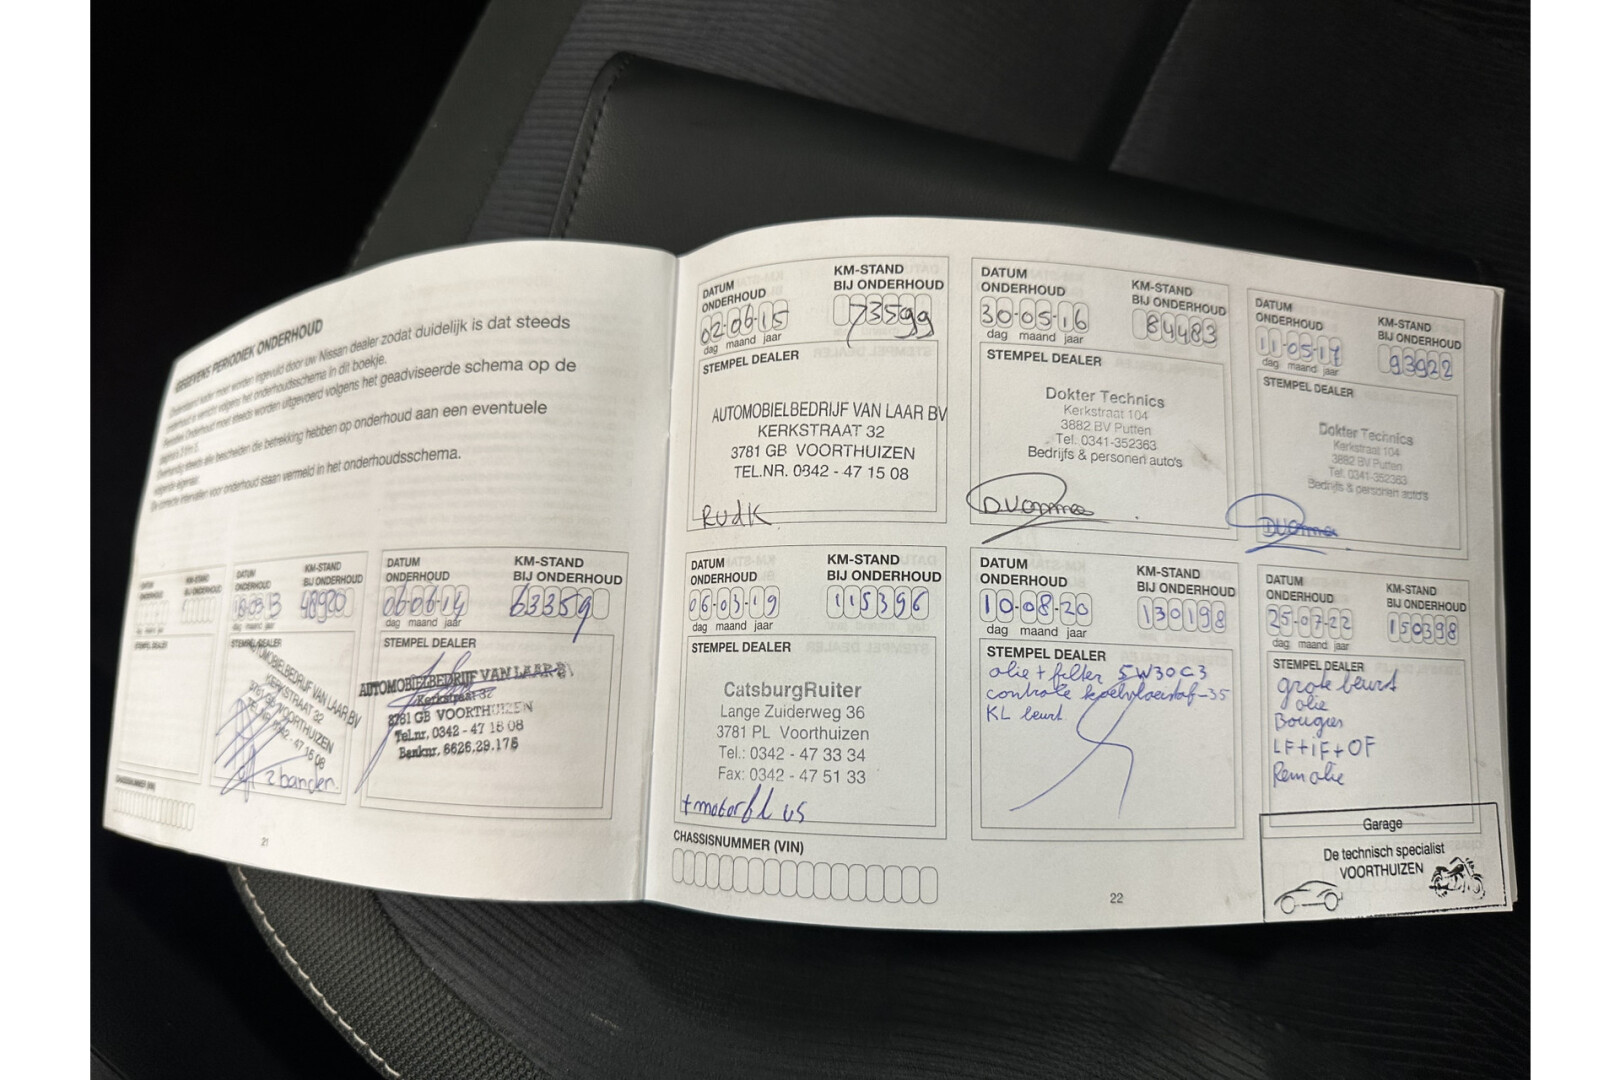 GEGEVENS PERIODIEK ONDERHOUD
Onderstaand kader moet worden ingevuld door uw Nissan dealer zodat duidelijk is dat steeds
onderhoud is verricht volgens het onderhoudsschema in dit boekje.
Periodiek Onderhoud moet steeds worden uitgevoerd volgens het geadviseerde schema op de
Overhandig steeds alle bescheiden die betrekking hebben op onderhoud aan een eventuele
volgende eigenaar.
De correcte intervallen voor onderhoud staan vermeld in het onderhoudsschema.
DATUM ONDERHOUD
KM-STAND BIJ ONDERHOUD
dag maand jaar
STEMPEL DEALER
CHASSISNUMMER (VIN)
DATUM ONDERHOUD
KM-STAND BIJ ONDERHOUD
18-03-13
48920
dag maand jaar
STEMPEL DEALER
AUTOMOBIELBEDRIJF VAN LAAR BV
KERKSTRAAT 32
3781 GB VOORTHUIZEN
TEL.NR. 0342 - 47 15 08
2 banden.
DATUM
ONDERHOUD
KM-STAND
BIJ ONDERHOUD
06-06-14
63359
dag maand jaar
STEMPEL DEALER
AUTOMOBIELBEDRIJF VAN LAAR B.V.
Kerkstraat 32
3781 GB VOORTHUIZEN
Tel.nr. 0342 - 47 15 08
Banknr. 6626.29.175
21
DATUM
ONDERHOUD
KM-STAND
BIJ ONDERHOUD
02-06-15
73599
dag maand jaar
STEMPEL DEALER
AUTOMOBIELBEDRIJF VAN LAAR BV
KERKSTRAAT 32
3781 GB VOORTHUIZEN
TEL.NR. 0342 - 47 15 08
RudK
DATUM
ONDERHOUD
KM-STAND
BIJ ONDERHOUD
30-05-16
84483
dag maand jaar
STEMPEL DEALER
Dokter Technics
Kerkstraat 104
3882 BV Putten
Tel. 0341-352363
Bedrijfs & personen auto's
DATUM
ONDERHOUD
KM-STAND
BIJ ONDERHOUD
11-05-17
93922
dag maand jaar
STEMPEL DEALER
Dokter Technics
Kerkstraat 104
3882 BV Putten
Tel. 0341-352363
Bedrijfs & personen auto's
DATUM
ONDERHOUD
KM-STAND
BIJ ONDERHOUD
06-03-19
115396
dag maand jaar
STEMPEL DEALER
CatsburgRuiter
Lange Zuiderweg 36
3781 PL Voorthuizen
Tel.: 0342 - 47 33 34
Fax: 0342 - 47 51 33
+motorfl vs
CHASSISNUMMER (VIN)
DATUM
ONDERHOUD
KM-STAND
BIJ ONDERHOUD
10-08-20
130198
dag maand jaar
STEMPEL DEALER
olie + filter 5W30C3
controle koelvloeistof -35
KL beurt
22
DATUM
ONDERHOUD
KM-STAND
BIJ ONDERHOUD
25-07-22
150398
dag maand jaar
STEMPEL DEALER
grote beurt
olie
Bougies
LF+iF+OF
Remolie
Garage
De technisch specialist
VOORTHUIZEN